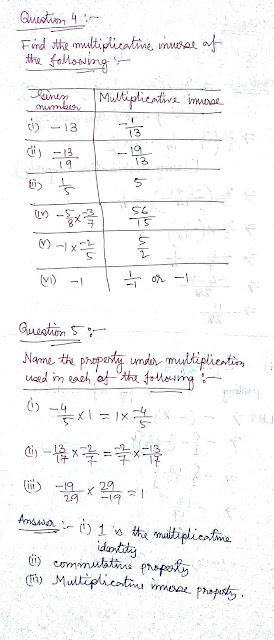 Question 4 :-
Find the multiplicative inverse of
the following :-
Given number | Multiplicative inverse
(i) -13 | -1/13
(ii) -13/19 | -19/13
(iii) 1/5 | 5
(iv) -5/8 × -3/7 | 56/15
(v) -1 × -2/5 | 5/2
(vi) -1 | 1/-1 or -1
Question 5 :-
Name the property under multiplication
used in each of the following :-
(i) -4/5 × 1 = 1 × -4/5
(ii) -13/17 × -2/7 = -2/7 × -13/17
(iii) -19/29 × 29/-19 = 1
Answer :- (i) 1 is the multiplicative
identity
(ii) commutative property
(iii) Multiplicative inverse property.